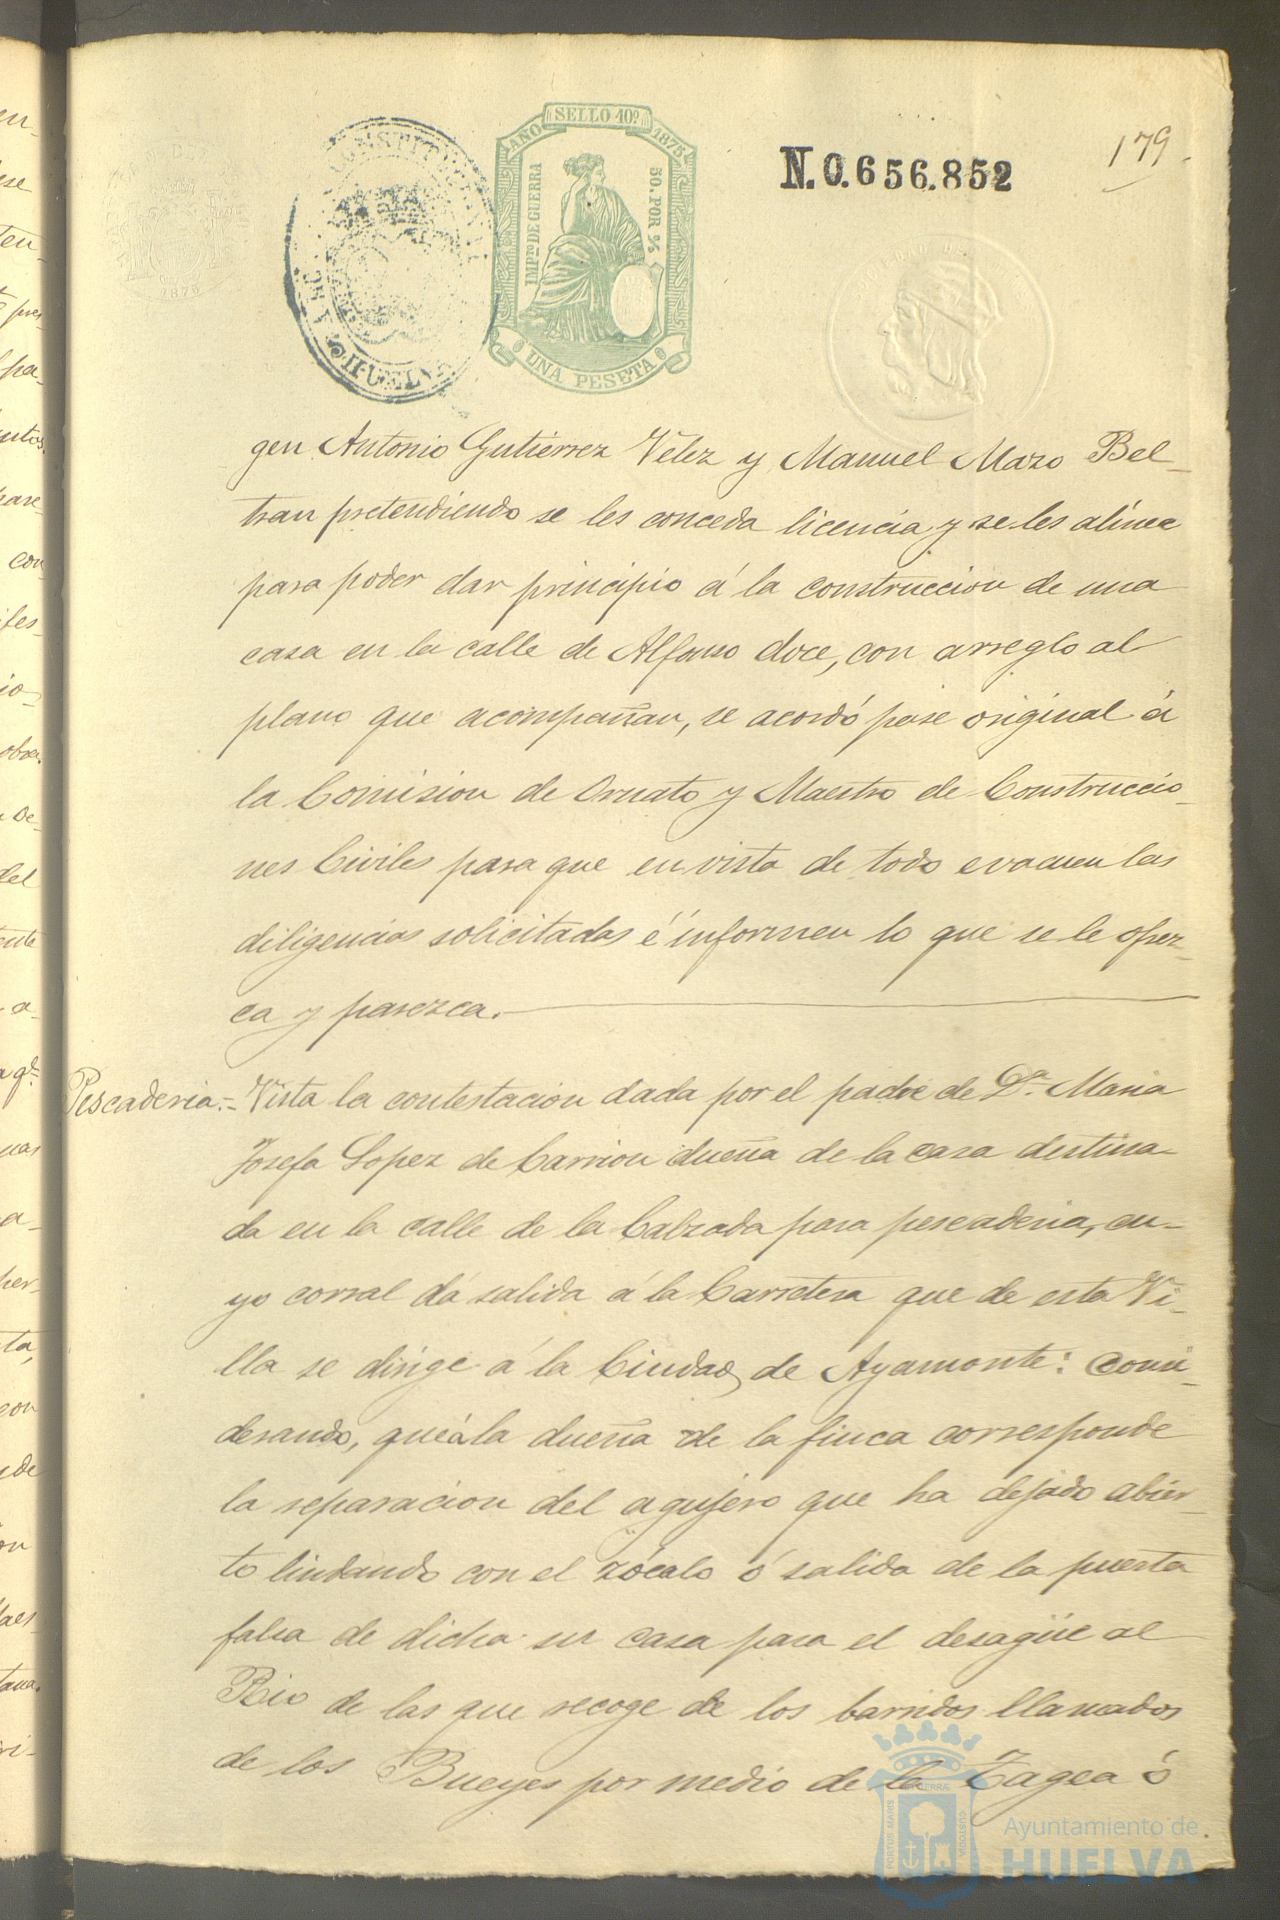 179
N. 0.656.852
AÑO SELLO 10º 1875
IMPTO DE GUERRA
50. POR %
UNA PESETA
CONSTITUCIONAL
HUELVA
1875
gen Antonio Gutierrez Velez y Manuel Mazo Bel-
tran pretendiendo se les conceda licencia y se les alinee
para poder dar principio á la construccion de una
casa en la calle de Alfonso doce, con arreglo al
plano que acompañan, se acordó pase original á
la Comision de Ornato y Maestro de Construccio-
nes Civiles para que en vista de todo evacuen las
diligencias solicitadas é informen lo que se le ofrez-
ca y parezca.
Pescaderia.= Vista la contestacion dada por el padre de Dª. Maria
Josefa Lopez de Carrion dueña de la casa destina-
da en la calle de la Calzada para pescaderia, cu-
yo corral dá salida á la Carretera que de esta Vi-
lla se dirige á la Ciudad de Ayamonte: Consi-
derando, que á la dueña de la finca corresponde
la reparacion del agujero que ha dejado abier-
to lindando con el zócalo ó salida de la puerta
falsa de dicha su casa para el desagüe al
Rio de las que recoge de los barridos llamados
de los Bueyes por medio de la Tagea ó
PORTUS MARIS
CUSTODIA
Ayuntamiento de
HUELVA